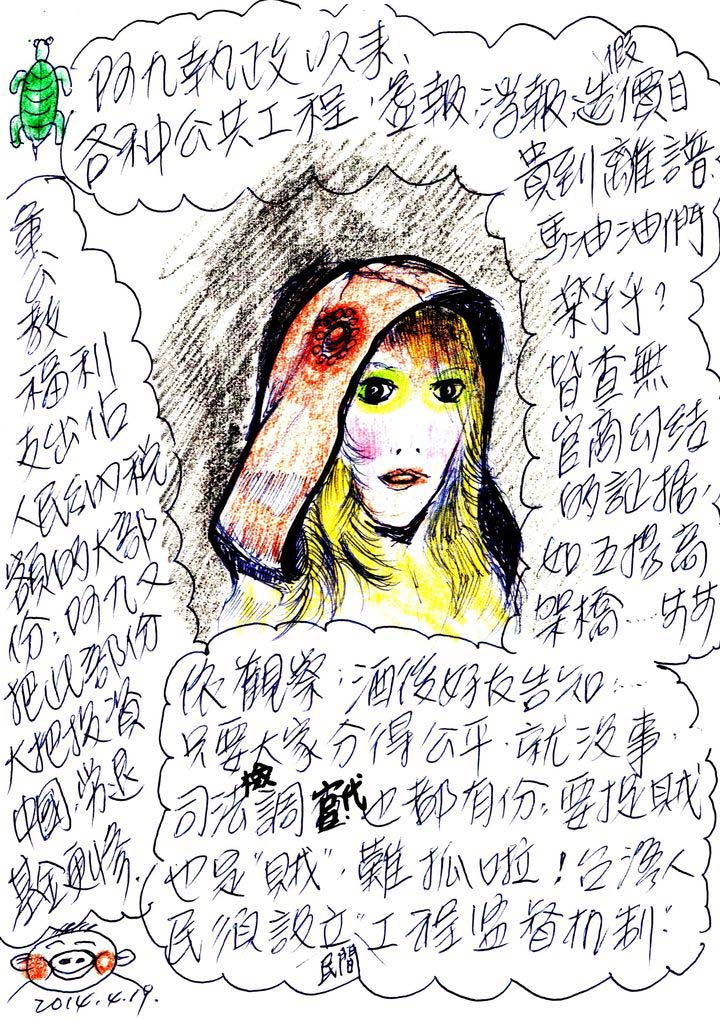 阿九執政以來、
各种公共工程，虛報，浮報，造假價目
貴到離譜.
馬油油們
榮乎乎?
皆查無
官商勾結
的証据，
如五揚高
架橋……
軍公教
福利
支出佔
人民納稅
額的大部
份；阿九又
把此部份
大把投資
中國．勞退
基金更慘.
依觀察，酒後好友告知……
只要大家分得公平，就沒事，
司法檢調官代也都有份；要捉賊
也是"賊"，難抓啦！台灣人
民須設立"工程監督机制"
民間
2014.4.19.